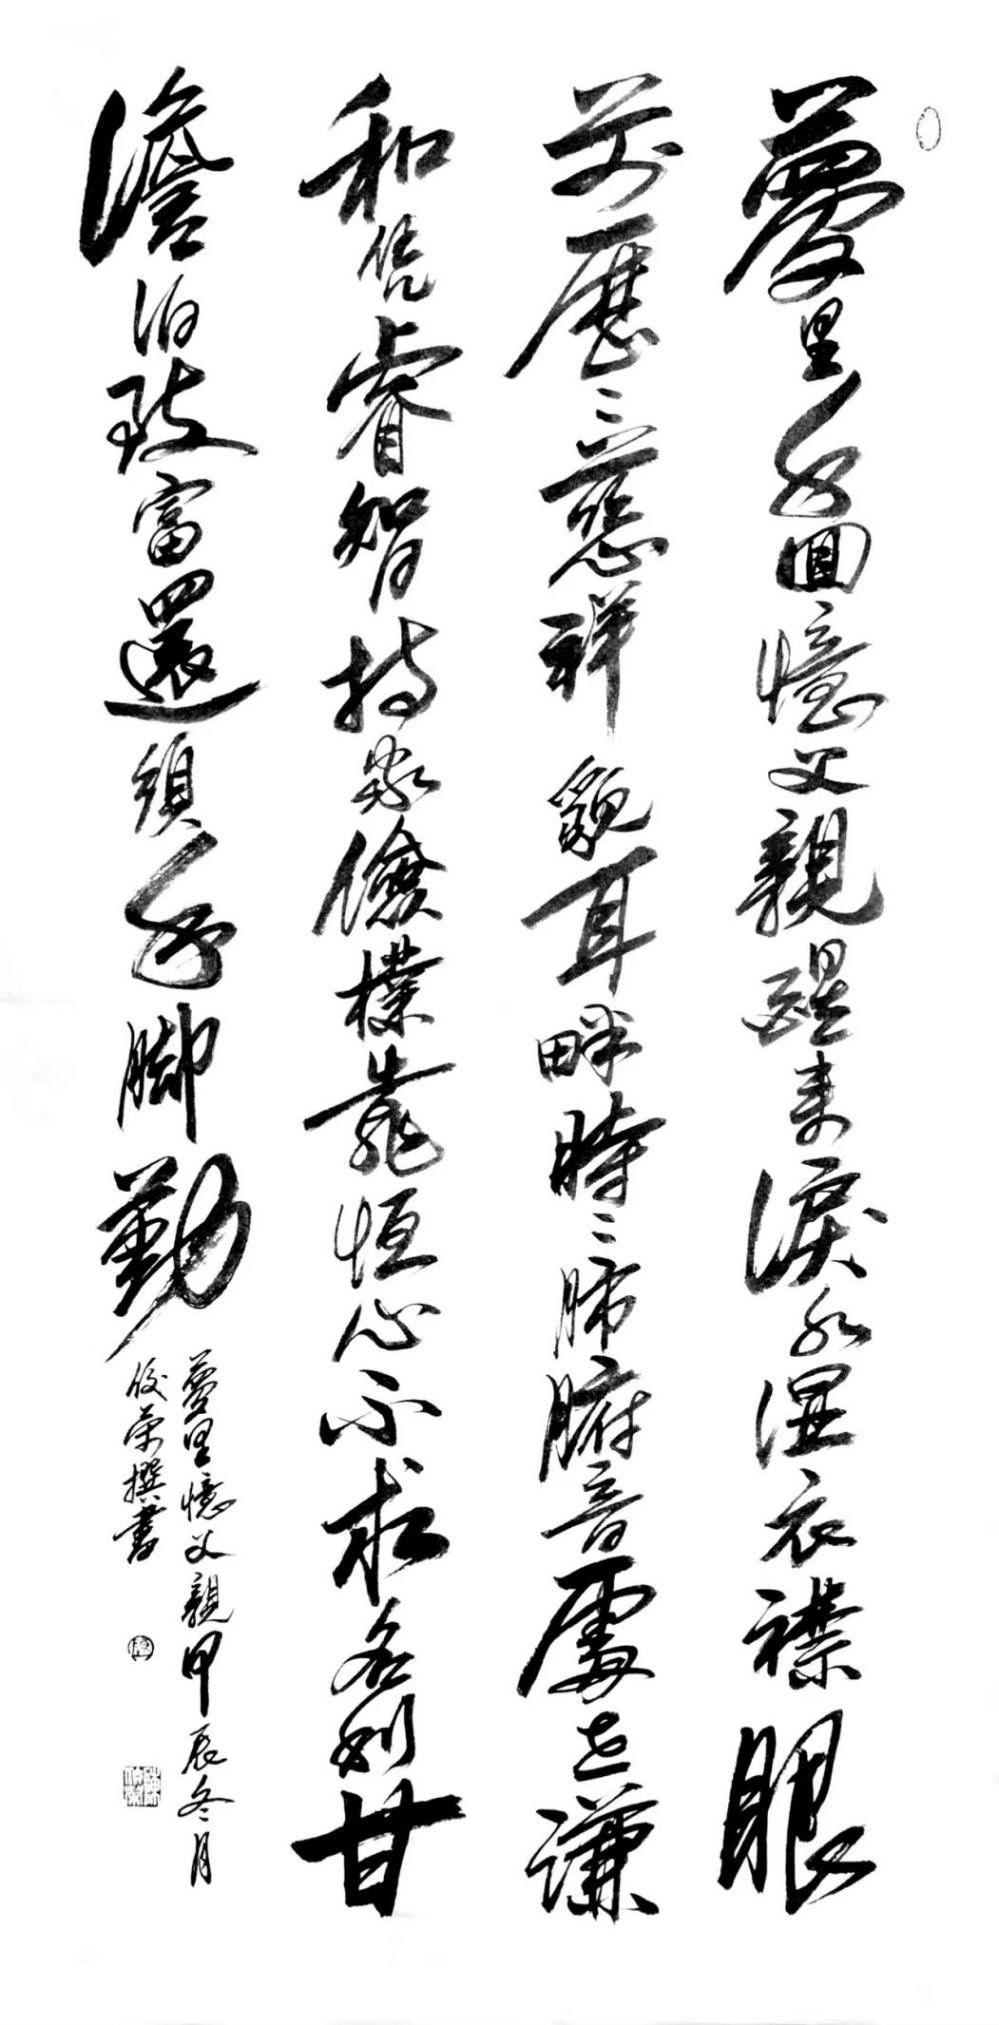 夢里每回憶父親醒来淚水湿衣襟眼
前歷〻慈祥貌耳畔時〻肺腑音處世謙
和凭睿智持家儉樸靠恒心不求名利甘
澹泊致富還須手脚勤
夢里憶父親甲辰冬月
俊榮撰書